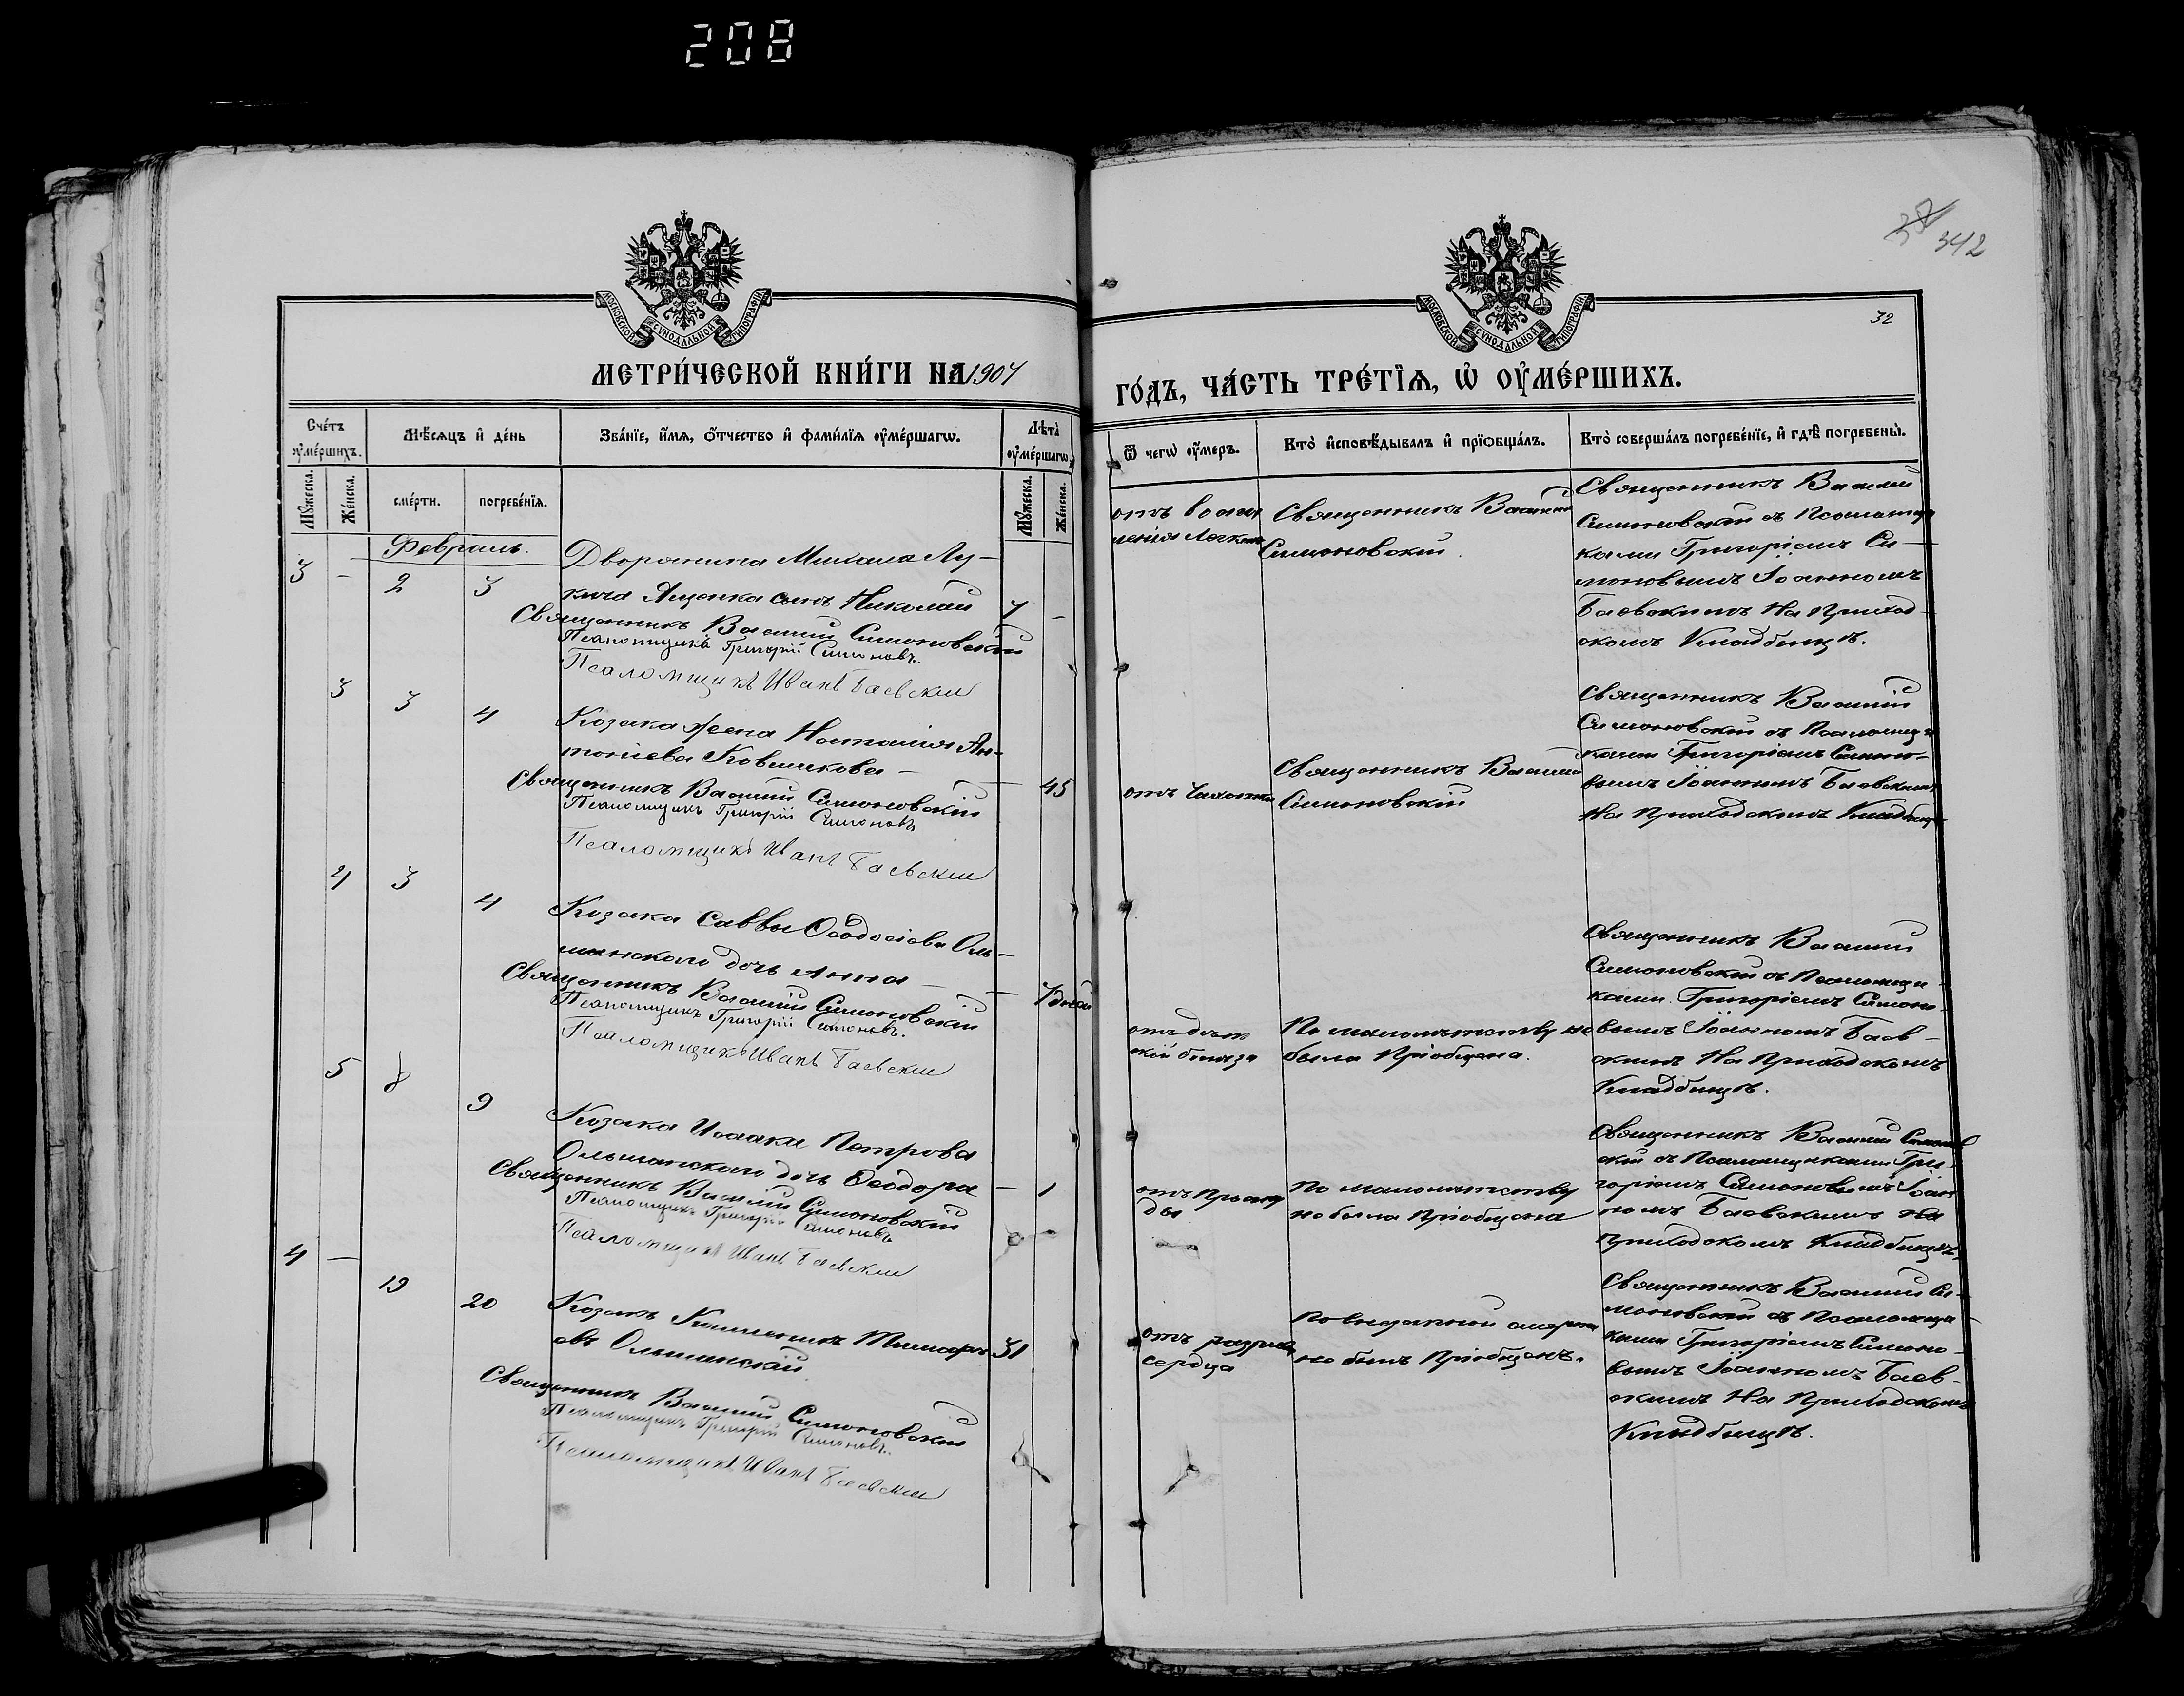 208
342
32
МОСКОВСКОЙ СѴНОДАЛЬНОЙ ТИПОГРАФІИ
МОСКОВСКОЙ СѴНОДАЛЬНОЙ ТИПОГРАФІИ
МЕТРИ́ЧЕСКОЙ КНИ́ГИ НА 1907
ГО́ДЪ, ЧА́СТЬ ТРЕ́ТІѦ, Ѡ҆ ОУ҆МЕ́РШИХЪ.
Сче́тъ оу҆ме́ршихъ.
Мѣ́сяцъ и҆ де́нь
Зва́нїе, и҆́мя, ѻ҆́тчество и҆ фами́лїя оу҆ме́ршагѡ.
Лѣта̀ оу҆ме́ршагѡ
Ѿ чегѡ̀ оу҆́меръ.
Кто̀ и҆сповѣ́дывалъ и҆ прїѻбща́лъ.
Кто̀ соверша́лъ погребе́нїе, и҆ гдѣ̀ погребены̀.
Мꙋ́жеска.
Же́нска.
сме́рти.
погребе́нїя.
Мꙋ́жеска.
Же́нска.
Февраль.
3 - 2 3
Дворянина Михаила Лу-
кича Яценка сынъ Николай 7 -
Священникъ Василій Симоновскій
Псаломщикъ Григорій Симоновъ.
Псаломщикъ Иванъ Баевскій
отъ воспа
ленія легкихъ
Священникъ Василий
Симоновскій.
Священникъ Василий
Симоновскій съ Псаломщи
ками Григоріемъ Си-
моновымъ Іоанномъ
Баевскимъ На приход-
скомъ Кладбищѣ.
3 3 4
Козака жена Наталія Ан-
тоніева Ковшикова - - 45
Священникъ Василій Симоновскій
Псаломщикъ Григорій Симоновъ
Псаломщикъ Иванъ Баевскій
отъ Чахотки
Священникъ Василий
Симоновскій
Священникъ Василій
Симоновскій съ Псаломщи
ками Григоріемъ Симоно-
вымъ Іоанномъ Баевскимъ
На Приходскомъ Кладбищѣ
4 3 4
Козака Саввы Ѳеодосіева Оль-
шанскаго дочь Анна - - 7 дней
Священникъ Василій Симоновскій
Псаломщикъ Григорій Симоновъ.
Псаломщикъ Иванъ Баевскій
По малолѣтству не
была Пріобщена.
Священникъ Василий
Симоновскій съ Псаломщи-
ками Григоріемъ Симоно-
вымъ Іоанномъ Баев-
скимъ На Приходскомъ
Кладбищѣ.
5 8 9
Козака Исаака Петрова
Ольшанскаго дочь Ѳеодора - 1
Священникъ Василій Симоновскій
Псаломщикъ Григорій Симоновъ
Псаломщикъ Иванъ Баевскій
отъ Просту
ды
По малолѣтству
не была Пріобщена
Священникъ Василий Симонов
скій съ Псаломщиками Гри-
горіемъ Симоновымъ Іоан
номъ Баевскимъ На
Приходскомъ Кладбищѣ.
4 - 19 20
Козакъ Тимоѳе- 31
евъ Ольшанскій.
Священникъ Василій Симоновскій
Псаломщикъ Григорій Симоновъ.
Псаломщикъ Иванъ Баевскій
отъ разрыва
сердца
По внезапной смерти
не былъ Пріобщенъ.
Священникъ Василий Си-
моновскій съ Псаломщи-
ками Григоріемъ Симоно-
вымъ Іоанномъ Баев-
скимъ На Приходскомъ
Кладбищѣ.